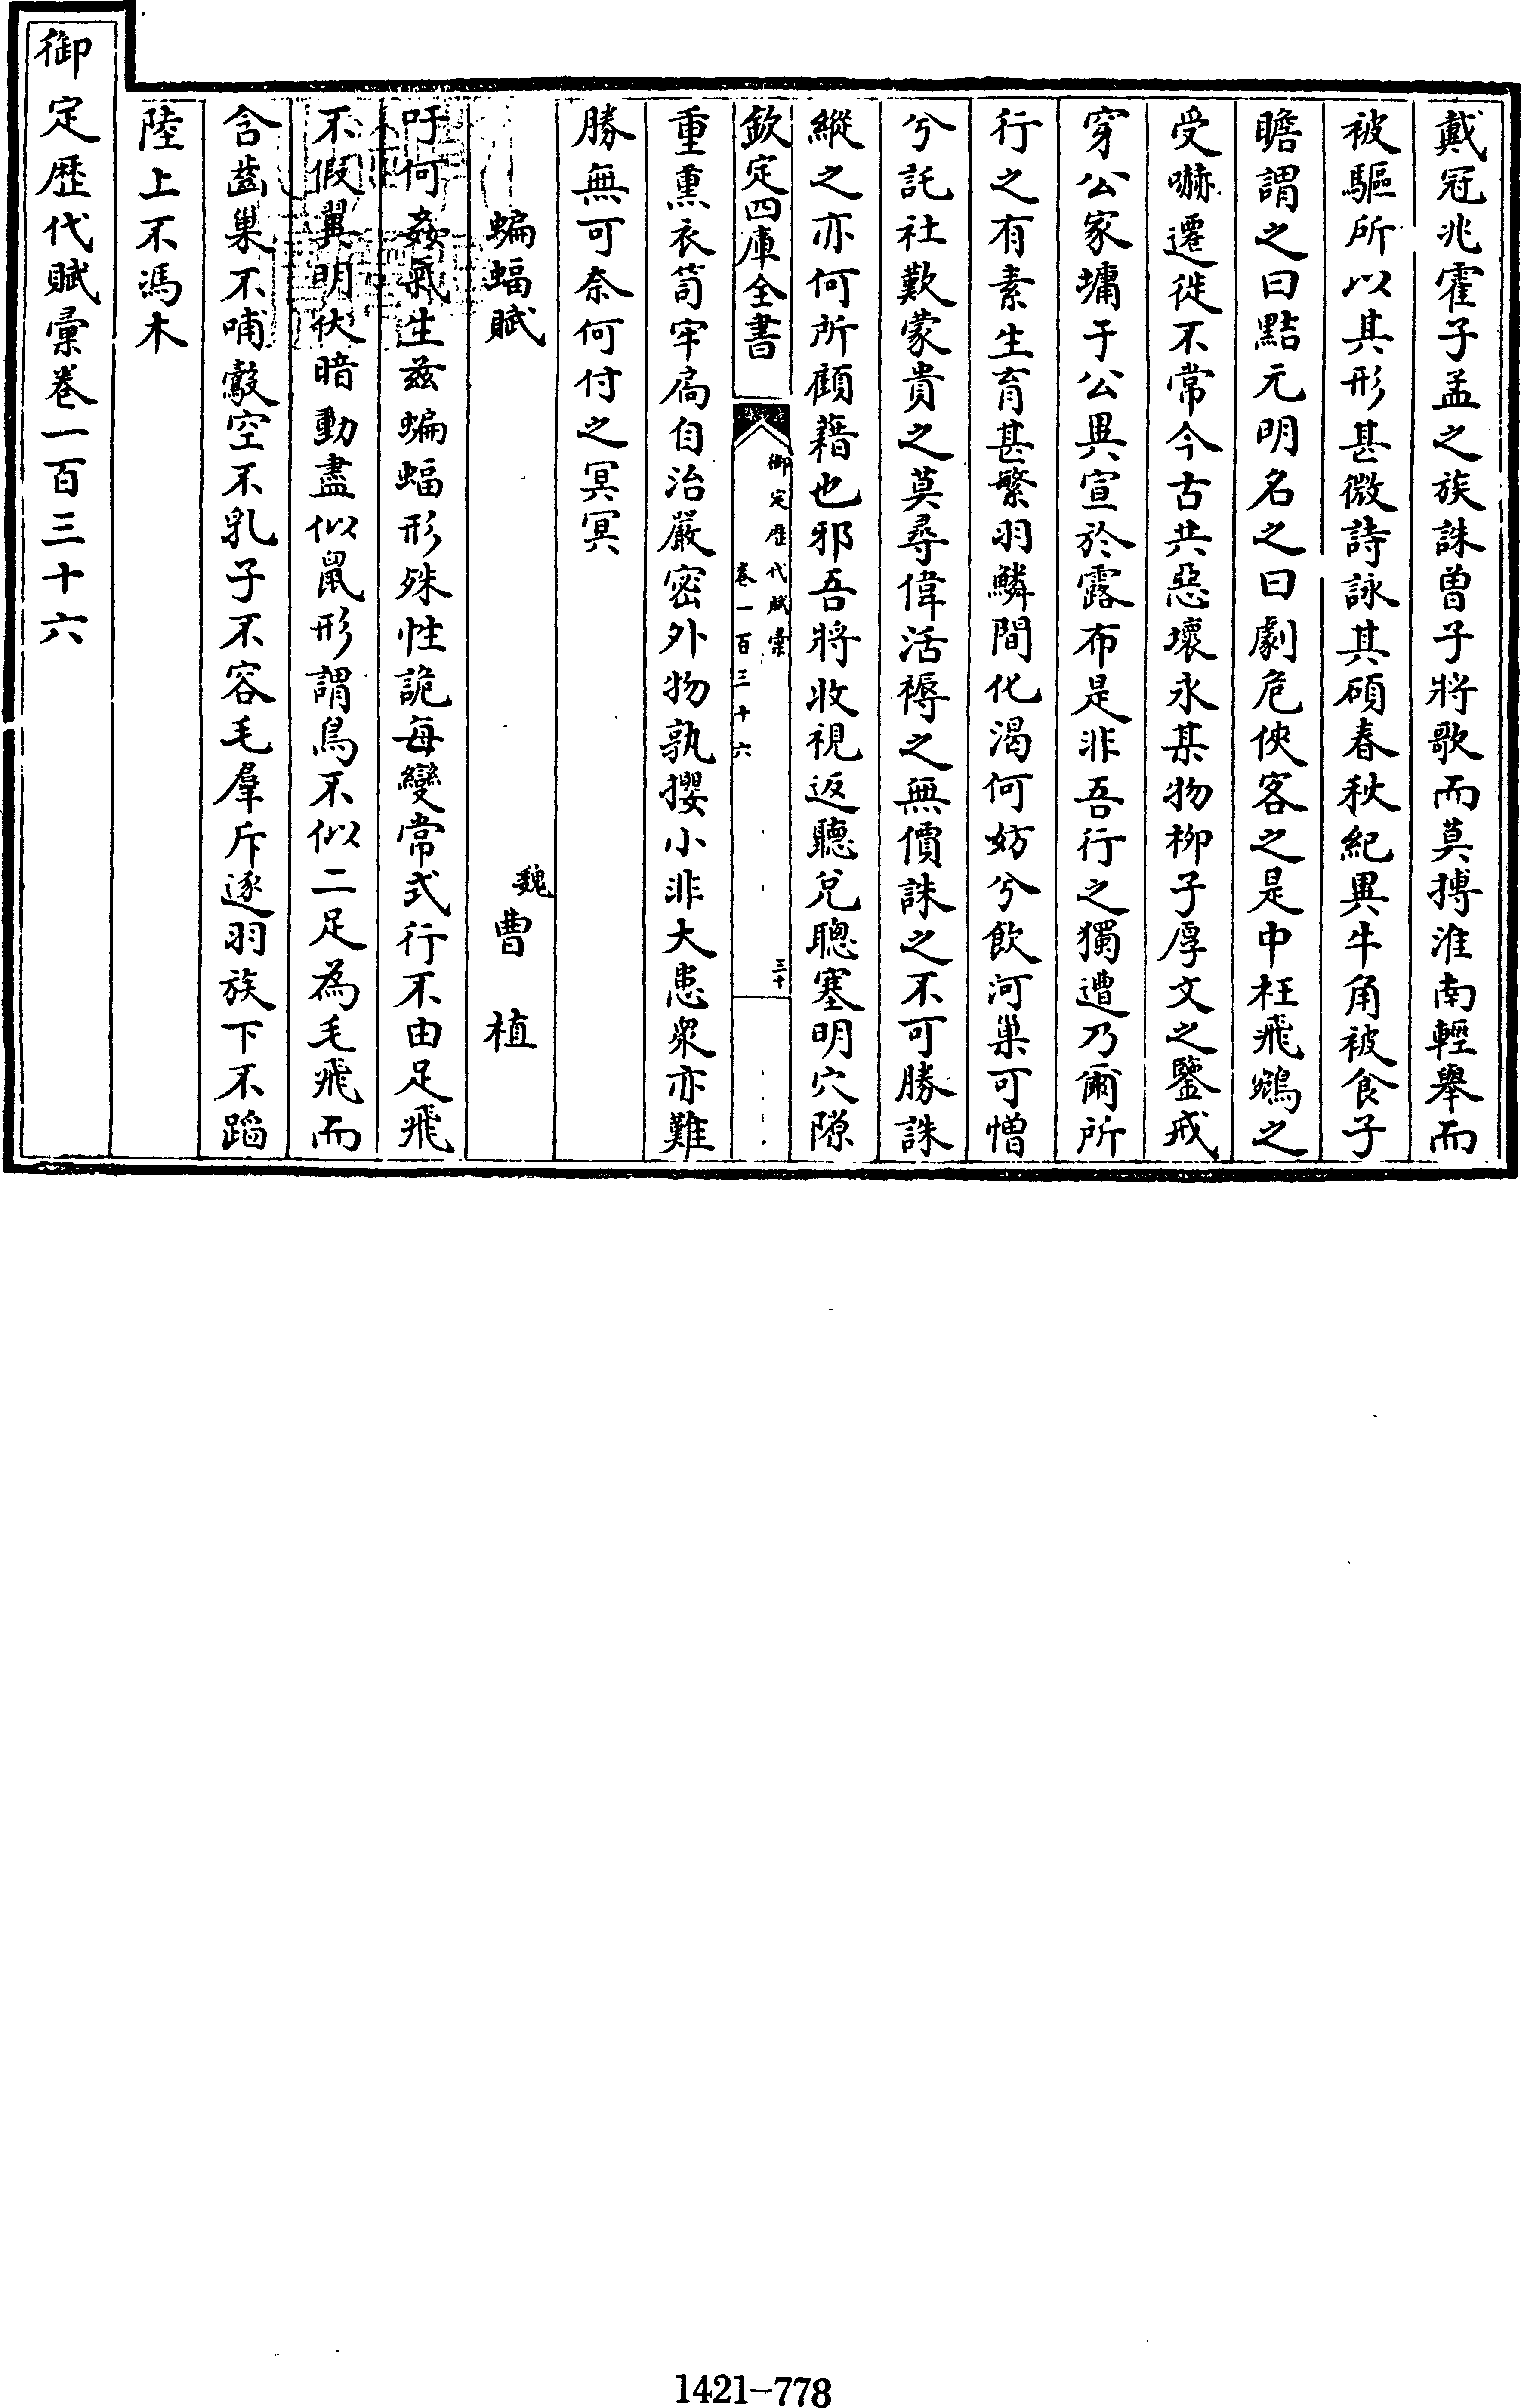 戴冠兆霍子孟之族誅曾子將歌而莫搏淮南輕舉而
被驅所以其形甚微詩詠其碩春秋紀異牛角被食子
瞻謂之曰黠元明名之曰劇危俠客之是中枉飛鵷之
受嚇遷徙不常今古共惡壞永某物栁子厚文之鑒戒
穿公家墉于公異宣於露布是非吾行之獨遭乃爾所
行之有素生育甚繁羽鱗間化渴何妨兮飲河巢可憎
兮託社歎蒙貴之莫尋偉活褥之無價誅之不可勝誅
縱之亦何所顧藉也邪吾將收視返聽兌聰塞明穴隙
欽定四庫全書
御定歴代賦彚
卷一百三十六
三十
重熏衣笥牢扃自治嚴密外物孰攖小非大患衆亦難
勝無可奈何付之冥冥
蝙蝠賦
魏曹植
吁何姦氣生兹蝙蝠形殊性詭每變常式行不由足飛
不假翼明伏暗動盡似鼠形謂鳥不似二足為毛飛而
含齒巢不哺鷇空不乳子不容毛羣斥逐羽族下不蹈
陸上不馮木
御定歴代賦彚卷一百三十六
1421-778